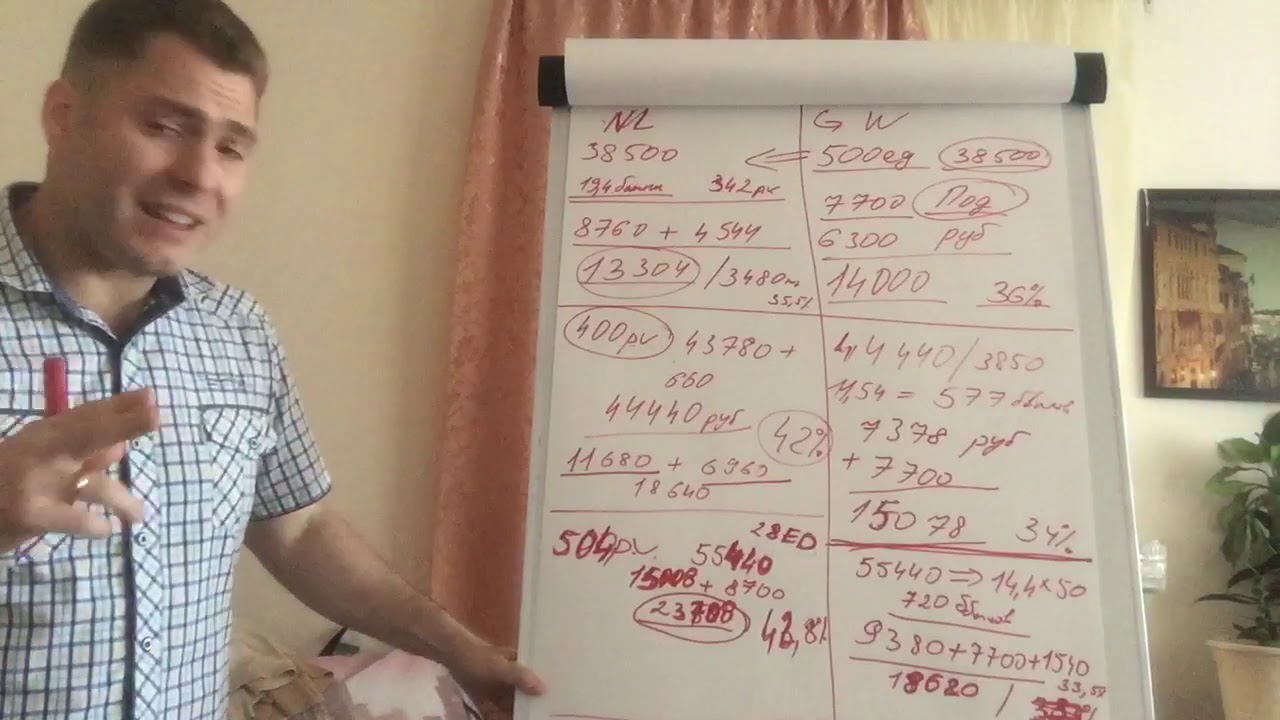 NL
38500
19,4 банки 342 pv
8760 + 4544
13304 / 3480
35,5%
400pv 43780 +
660
44440 руб
42%
11680 + 6960
18640
504pv 28ED
55440
15008 + 8700
23708
42,8%
G W
500ед 38500
7700 Под
6300 руб
14000 36%
44440/3850
11,54 = 577 баллов
7378 руб
+ 7700
15078 34%
55440 ⇒ 14,4 × 50
720 баллов
9380+7700+1540
18620 / 33,5%